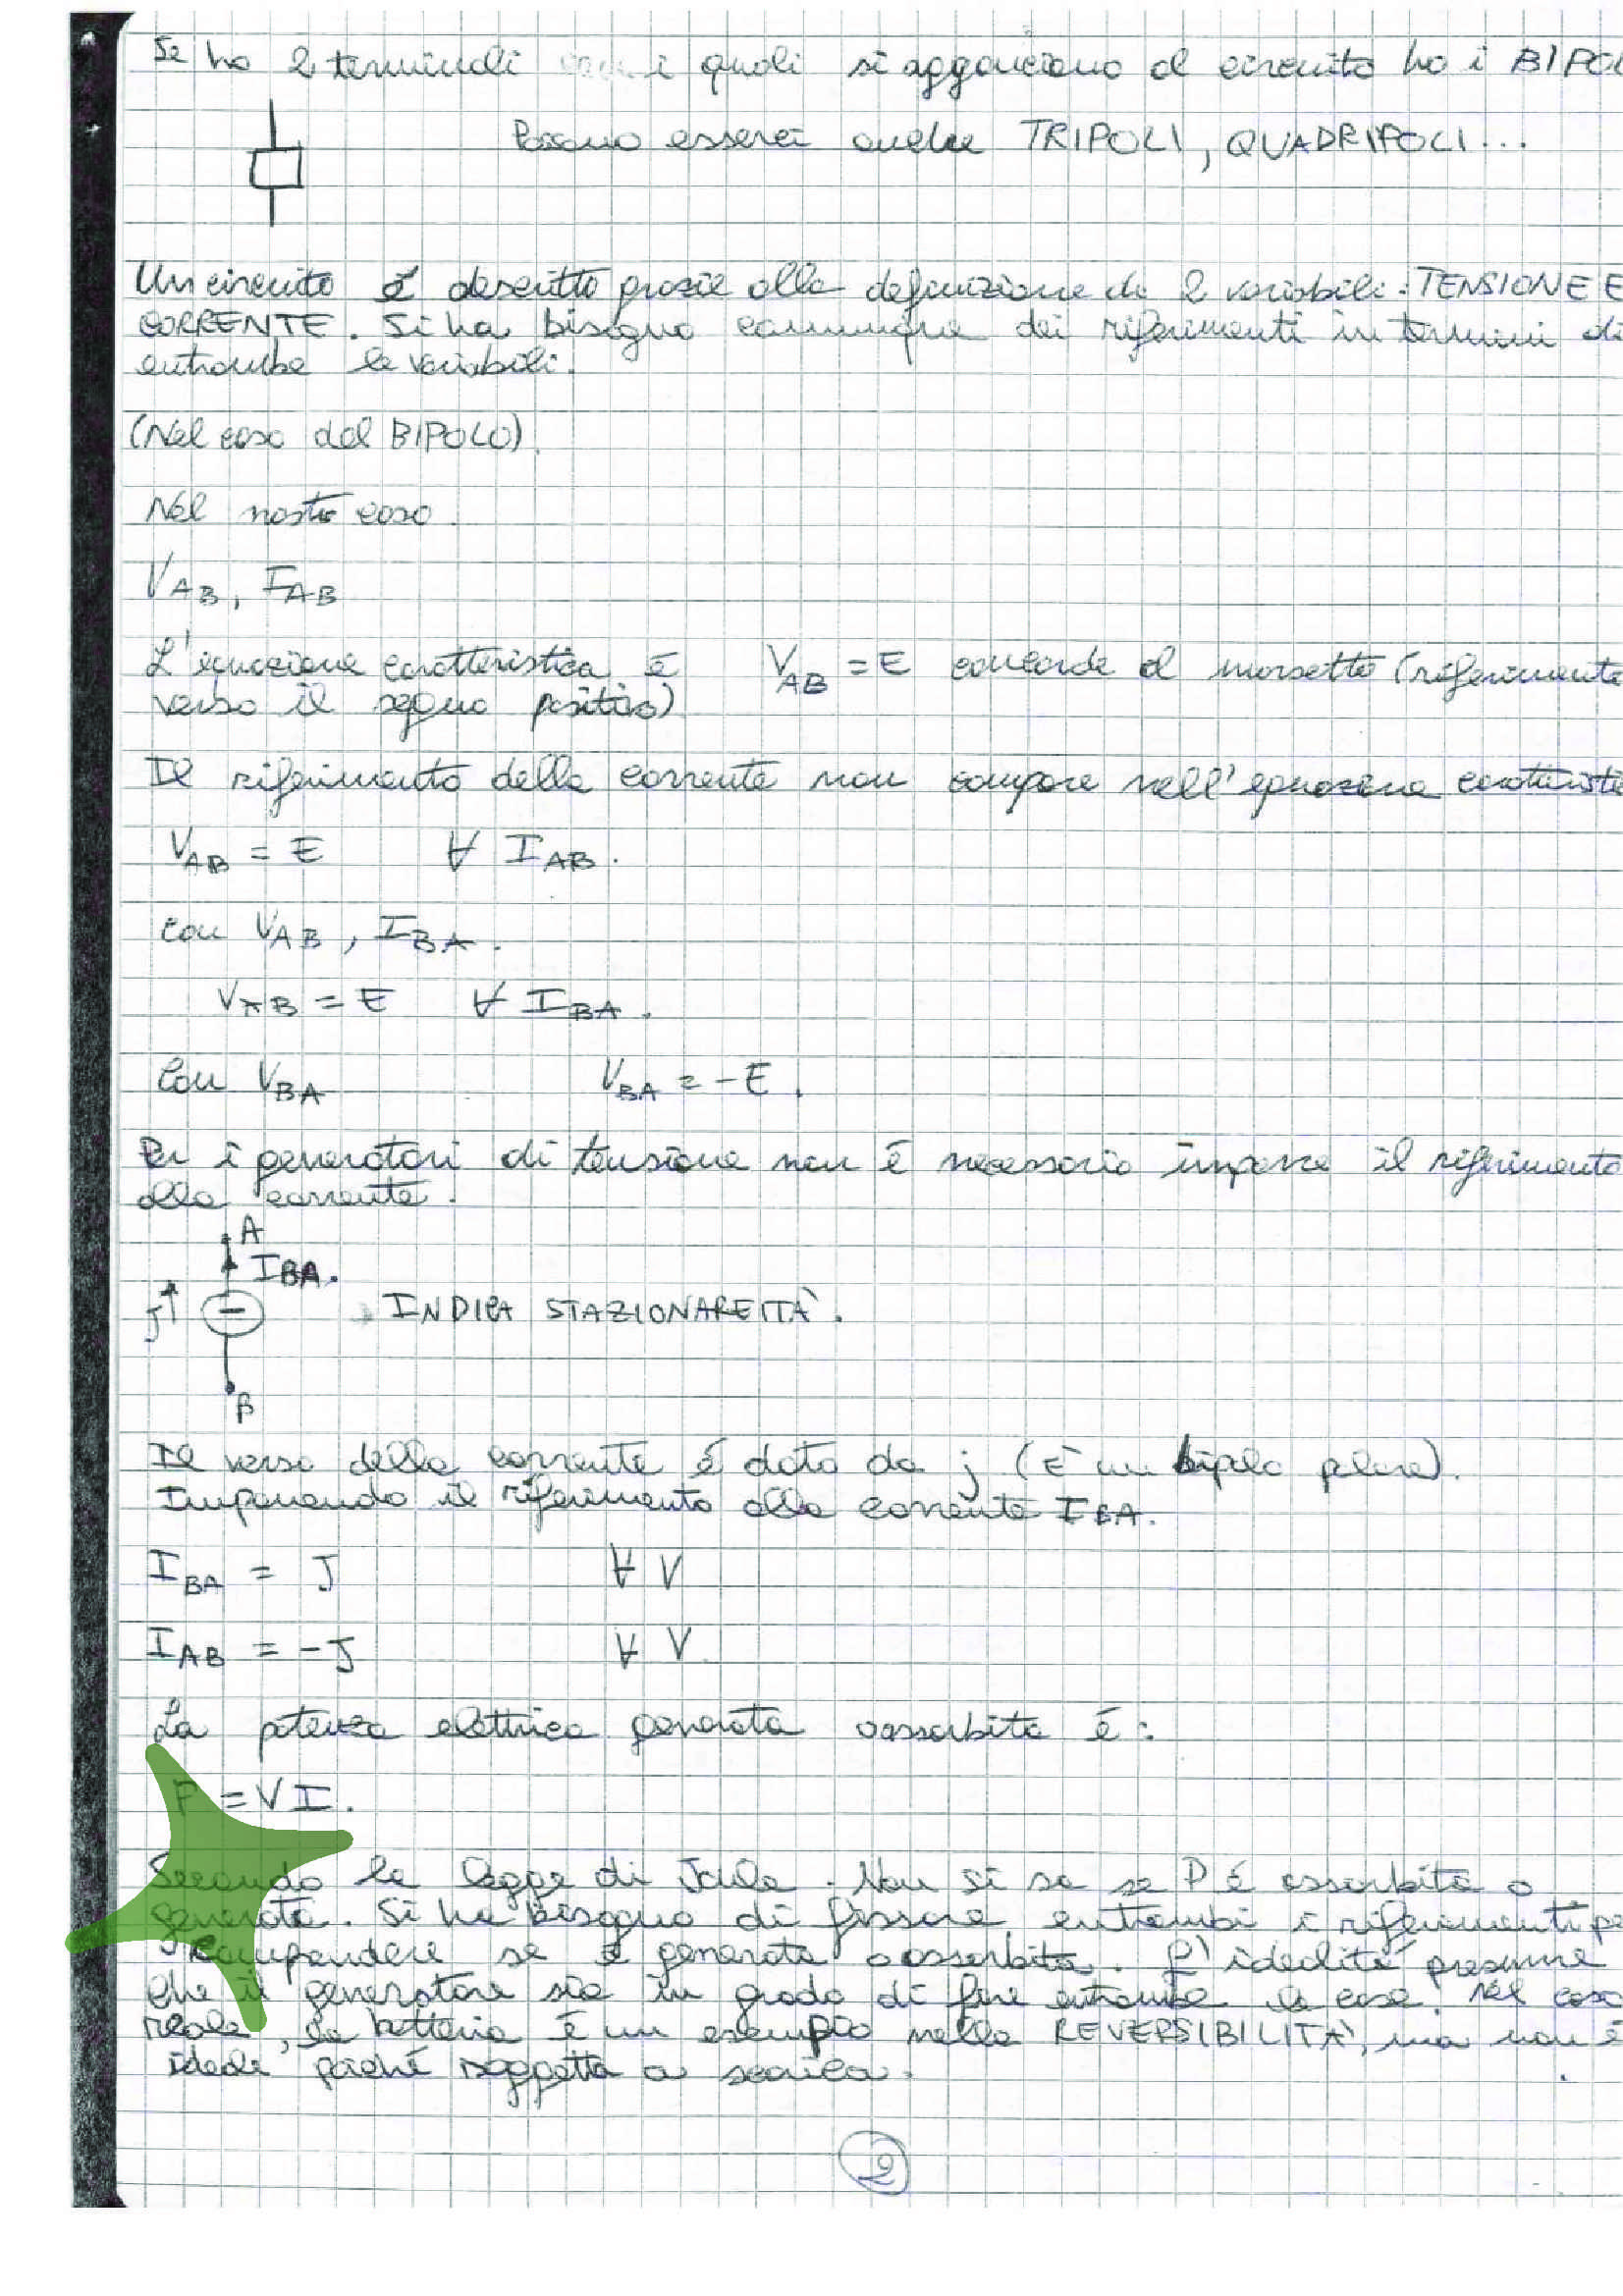 Se ho 2 terminali i quali si agganciano al circuito ho i BIPOL
Possono esserci anche TRIPOLI, QUADRIPOLI...
Un circuito è descritto grazie alla definizione di 2 variabili: TENSIONE E
CORRENTE. Si ha bisogno comunque dei riferimenti in termini di
entrambe le variabili.
(Nel caso del BIPOLO).
Nel nostro caso.
V_AB, I_AB
L'equazione caratteristica è V_AB = E concorde al morsetto (riferimento
verso il segno positivo)
Il riferimento della corrente non compare nell'equazione caratteristi
V_AB = E ∀ I_AB.
con V_AB, I_BA.
V_AB = E ∀ I_BA.
Con V_BA V_BA = -E.
Per i generatori di tensione non è necessario imporre il riferimento
alla corrente.
A
I_BA.
J↑ INDICA STAZIONAREITÀ.
B
Il verso della corrente è dato da j (È un bipolo polare).
Imponendo il riferimento alla corrente I_BA.
I_BA = J ∀ V
I_AB = -J ∀ V
La potenza elettrica generata o assorbita è:
P = VI.
Secondo la legge di Joule. Non si sa se P è assorbita o
generata. Si ha bisogno di fissare entrambi i riferimenti pe
comprendere se è generata o assorbita. L'idealità presume
che il generatore sia in grado di fare entrambe le cose. Nel caso
reale, la batteria è un esempio nella REVERSIBILITÀ, ma non è
ideale poiché soggetta a scarica.
2